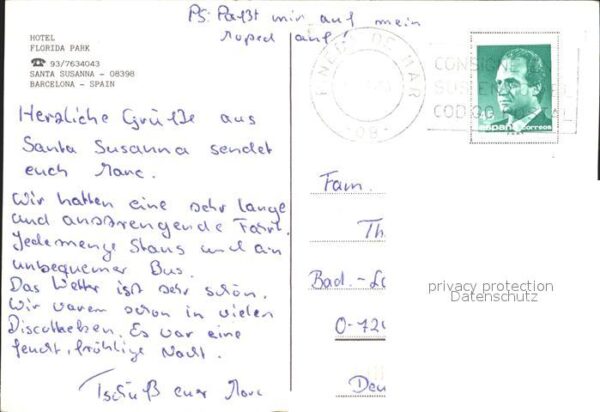 PS: Paßt mir auf mein
Moped auf!
HOTEL
FLORIDA PARK
☎ 93/7634043
SANTA SUSANNA - 08398
BARCELONA - SPAIN
Herzliche Grüße aus
Santa Susanna sendet
euch Marc.
Wir hatten eine sehr lange
und anstrengende Fahrt.
Jedemenge Staus und ein
unbequemer Bus.
Das Wetter ist sehr schön.
Wir waren schon in vielen
Discotheken. Es war eine
feucht, fröhlige Nacht.
Tschüß euer Marc
PINEDA DE MAR
-08-
CONSIGNE EN
SUS
CODIGO
españa correos
Fam.
Th
Bad.-L
O-720
Deu
privacy protection
Datenschutz